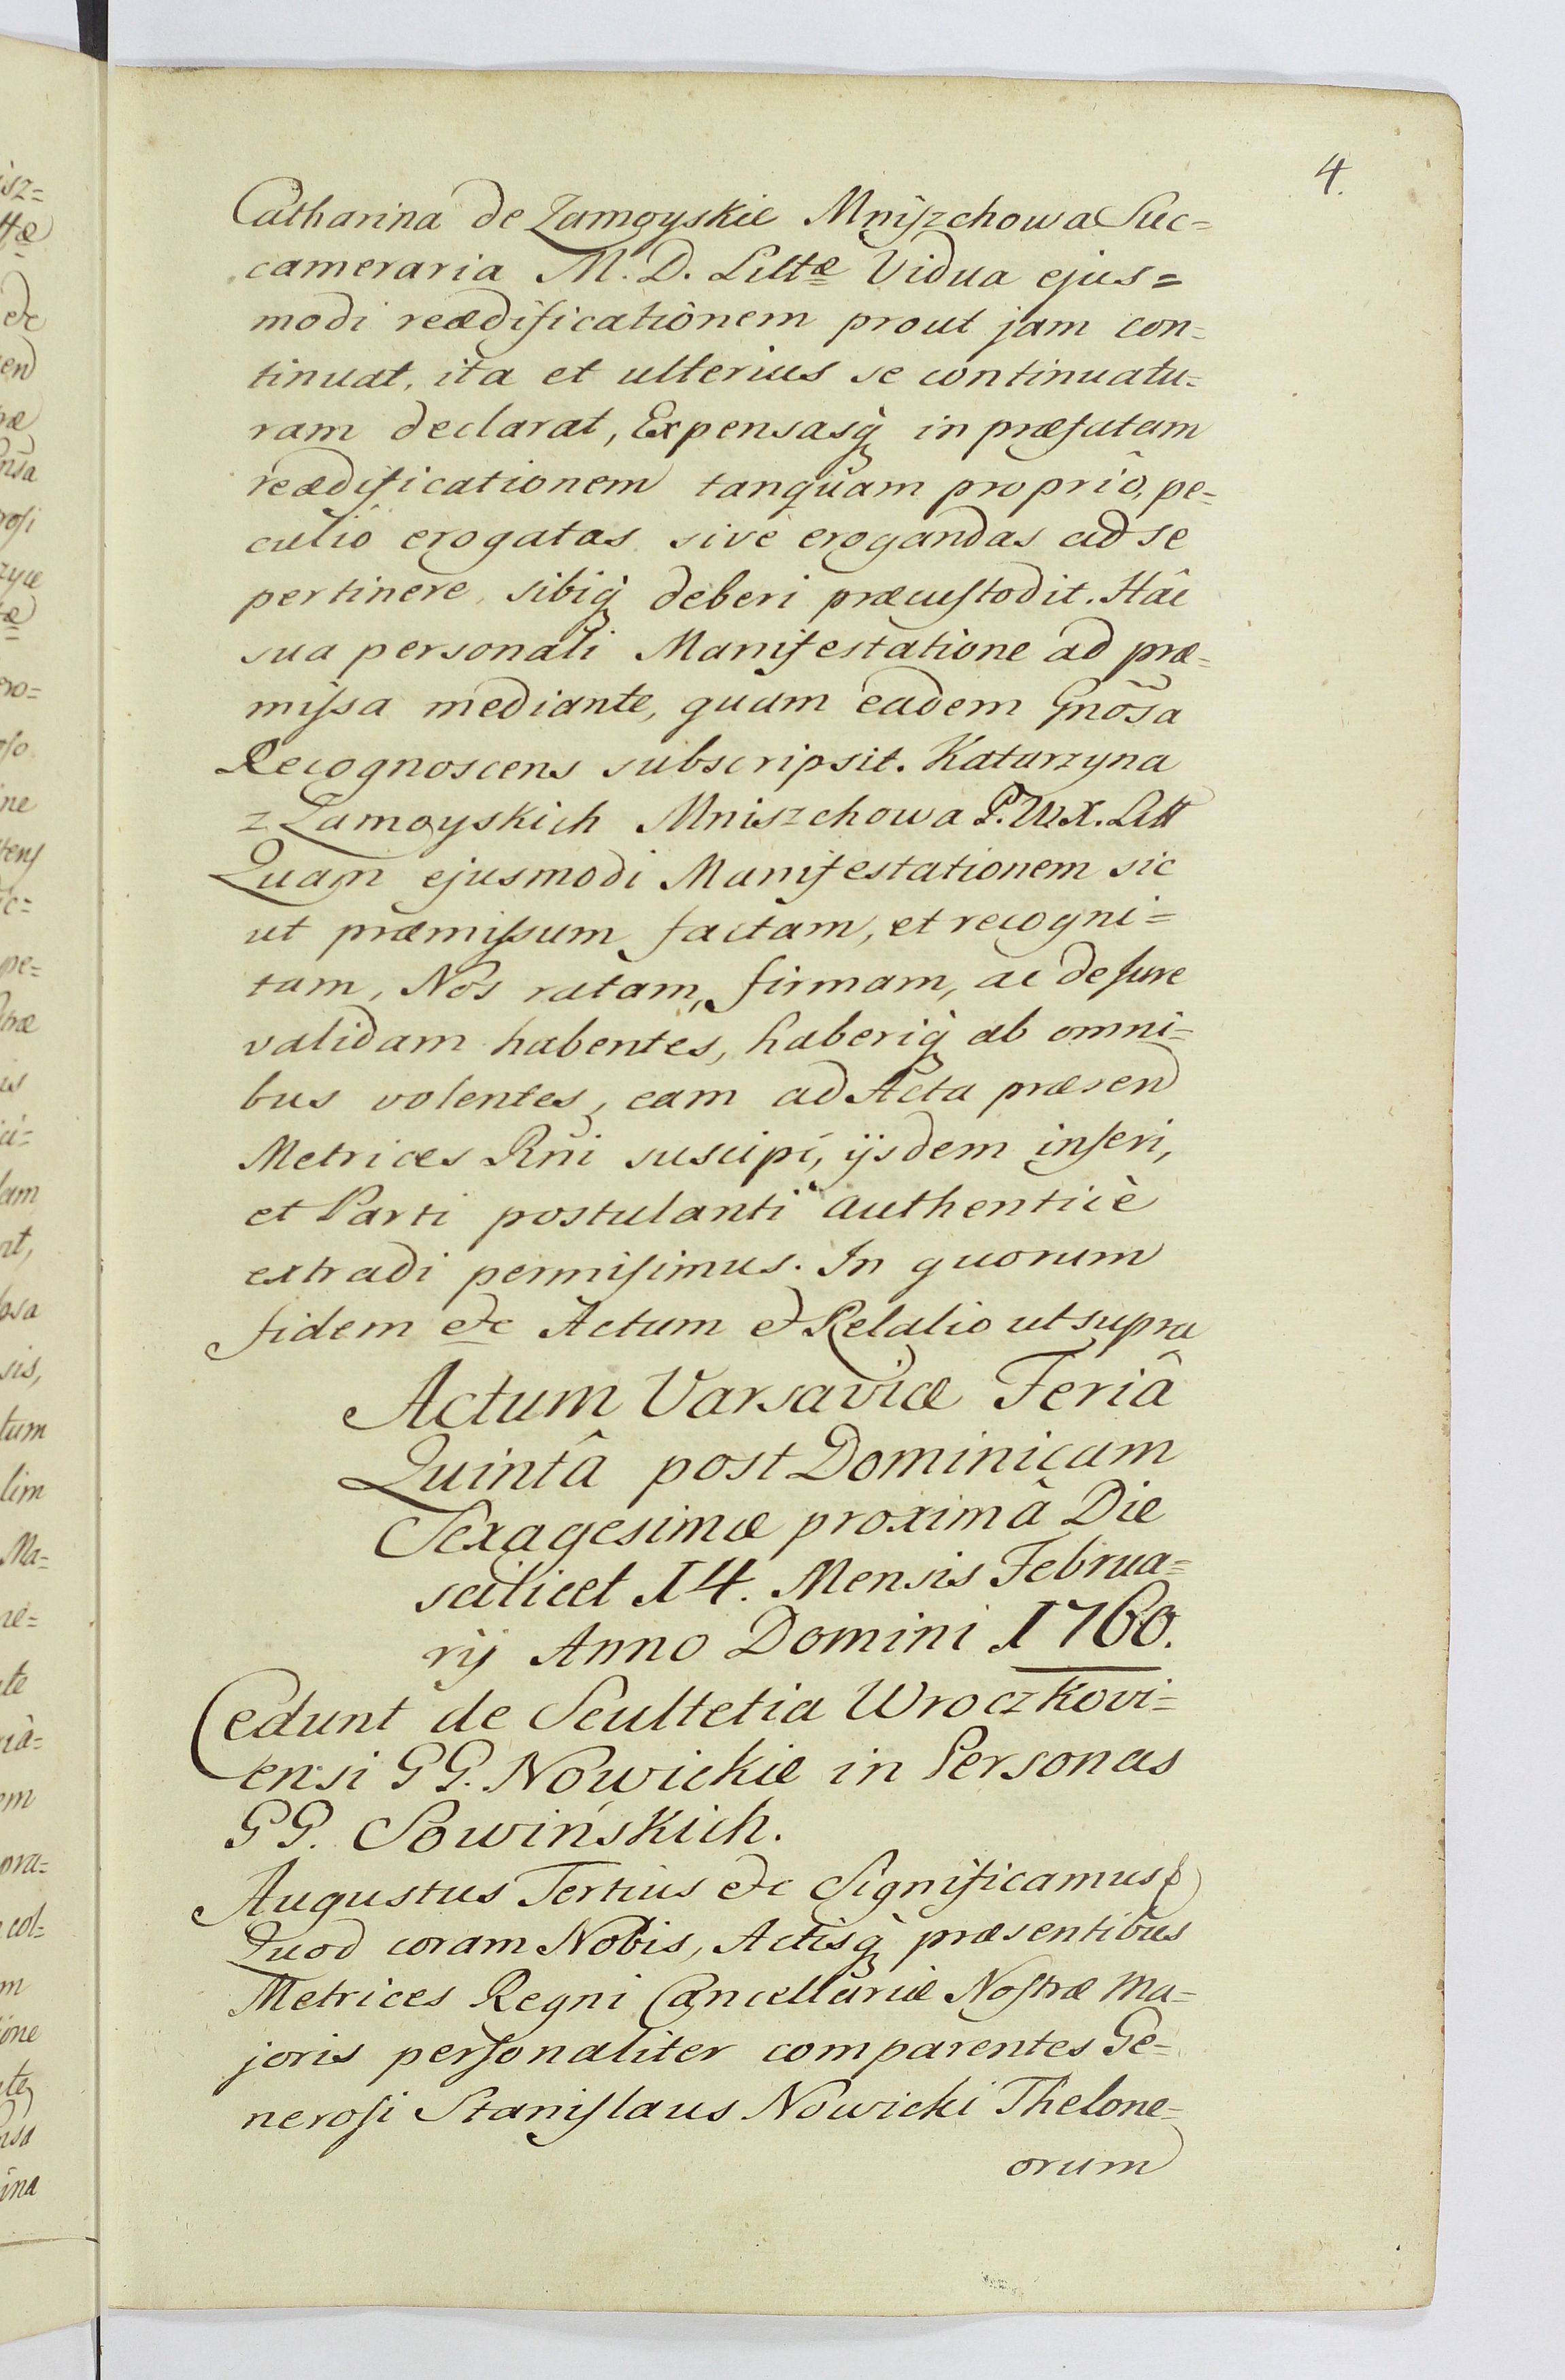 4.
Catharina de Zamoyskie Mniszchowa Suc=
cameraria M. D. Littæ Vidua ejus=
modi reædificationem prout jam con=
tinuat, ita et ulterius se continuatu=
ram declarat, Expensasq̀ in præfatam
reædificationem tanquam propriô, pe=
culiô erogatas sive erogandas ad se
pertinere, sibiq̀ deberi præcustodit. Hâc
sua personali Manifestatione ad præ=
missa mediante, quam eadem Gnõsa
Recognoscens subscripsit. Katarzyna
z Zamoyskich Mniszchowa P. W. X. Litt
Quam ejusmodi Manifestationem sic
ut præmissum factam, et recogni=
tam, Nos ratam, firmam, ac de Jure
validam habentes, haberiq̀ ab omni=
bus volentes, eam ad Acta præsen
Metrices Rni suscipi, ijsdem inseri,
et Parti postulanti authenticè
extradi permisimus. In quorum
fidem etc Actum et Relatio ut supra
Actum Varsaviæ Feriâ
Quintâ post Dominicam
Sexagesimæ proximâ Die
scilicet 14. Mensis Februa=
rij Anno Domini 1760.
Cedunt de Scultetia Wroczkovi=
ensi GG. Nowickie in Personas
GG. Sowińskich.
Augustus Tertius etc Significamus
Quod coram Nobis, Actisq̀ præsentibus
Metrices Regni Cancellariæ Nostræ Ma=
joris personaliter comparentes Ge=
nerosi Stanislaus Nowicki Thelone=
orum